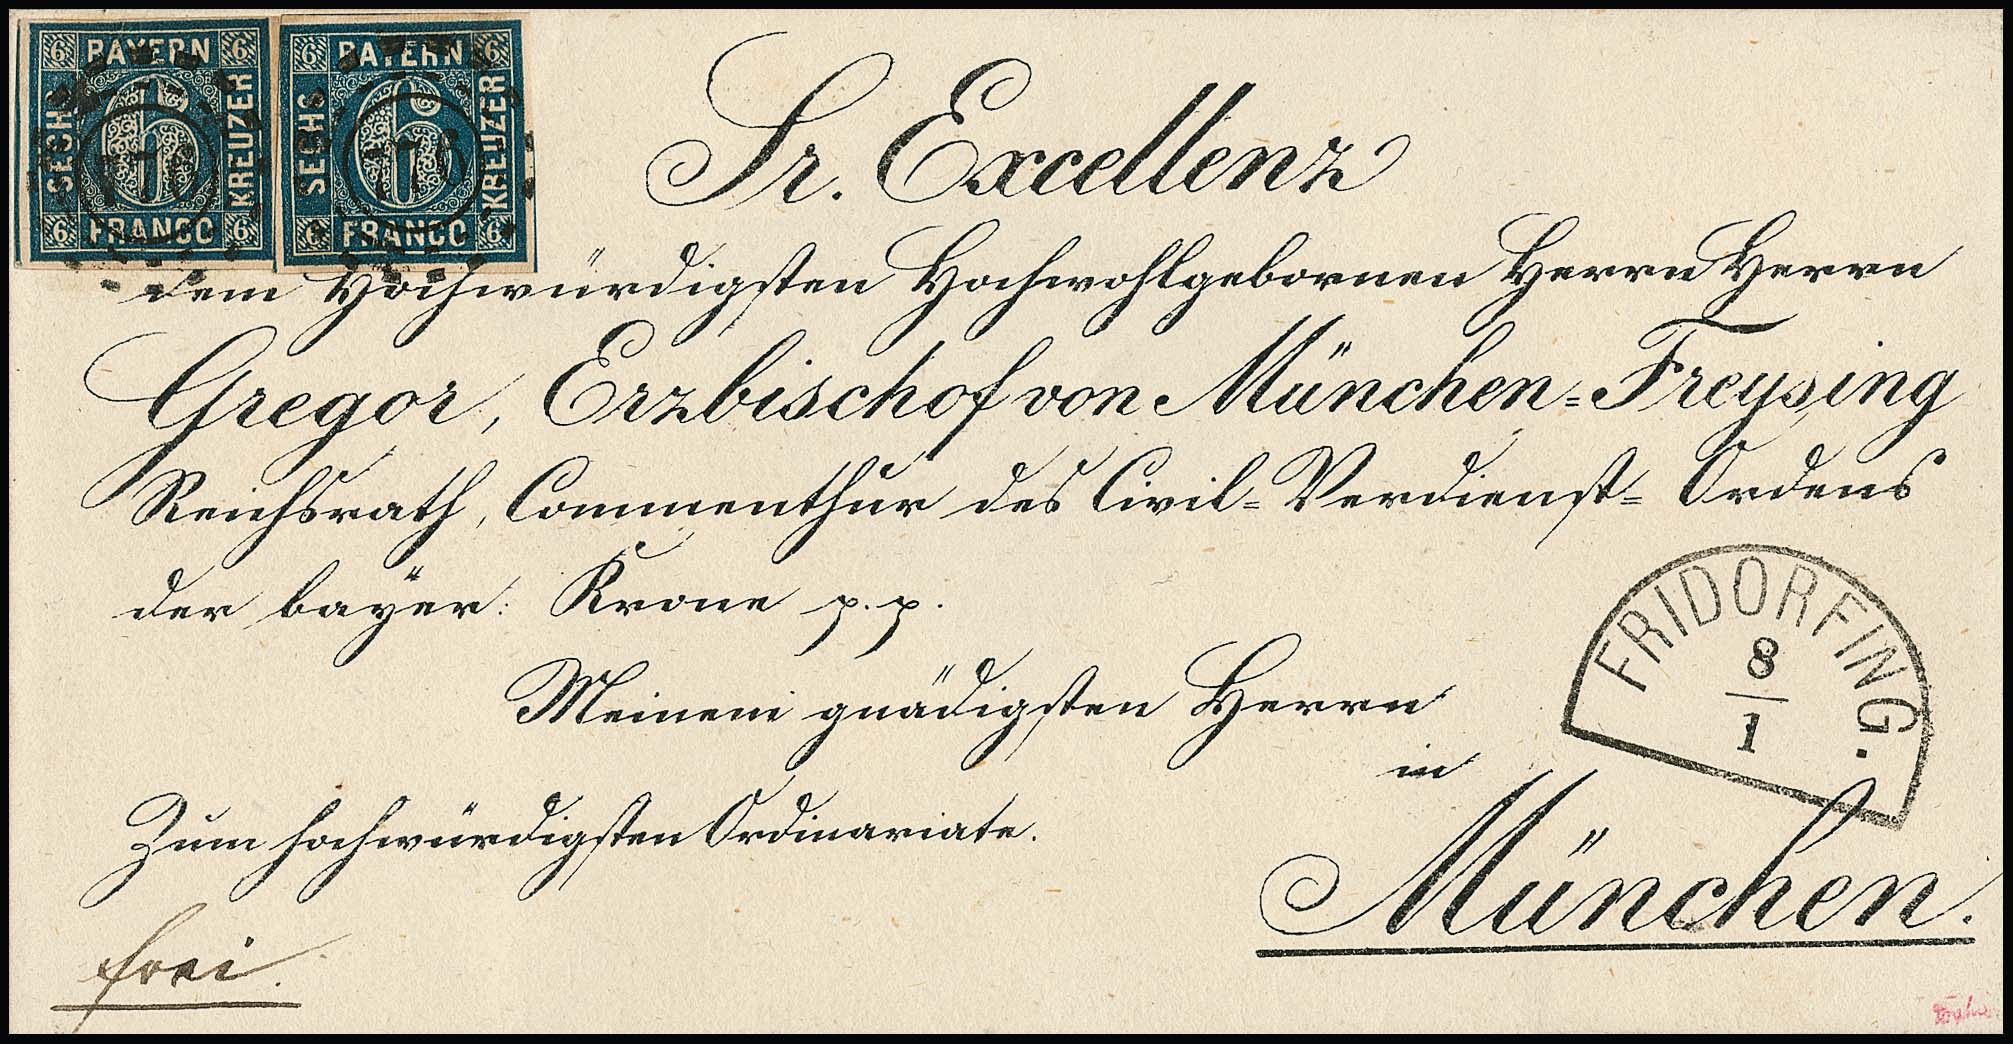 6 BAYERN 6
SECHS 6 KREUZER
776
6 FRANCO 6
6 BAYERN 6
SECHS 6 KREUZER
776
6 FRANCO 6
Sr. Excellenz
dem Hochwürdigsten Hochwohlgebornen Herrn Herrn
Gregor, Erzbischof von München=Freysing
Reichsrath, Commenthur des Civil=Verdienst=Ordens
der bayer: Krone p.p.
Meinem gnädigsten Herrn
in
München.
Zum hochwürdigsten Ordinariate.
frei.
FRIDORFING.
8
1